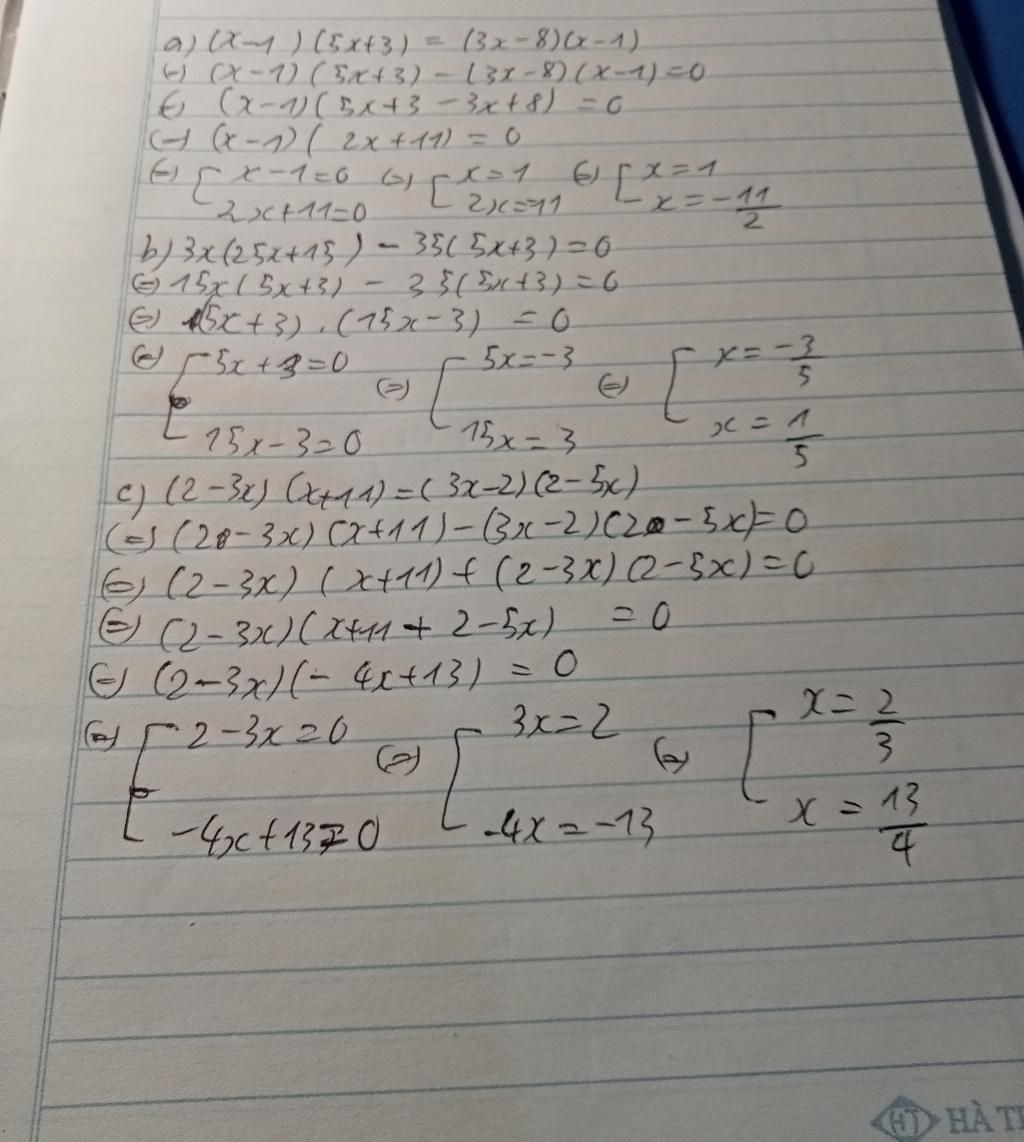 a) (x-1)(5x+3) = (3x-8)(x-1)
(=) (x-1)(5x+3) - (3x-8)(x-1) = 0
(=) (x-1)(5x+3-3x+8) = 0
(=) (x-1)(2x+11) = 0
(=) [x-1=0 (=) [x=1 (=) [x=1
2x+11=0 2x=-11 x=-11/2
b) 3x(25x+15) - 35(5x+3) = 0
(=) 15x(5x+3) - 35(5x+3) = 0
(=) (5x+3).(15x-3) = 0
(=) [5x+3=0 (=) [5x=-3 (=) [x=-3/5
15x-3=0 15x=3 x=1/5
c) (2-3x)(x+11) = (3x-2)(2-5x)
(=) (2-3x)(x+11) - (3x-2)(2-5x) = 0
(=) (2-3x)(x+11) + (2-3x)(2-5x) = 0
(=) (2-3x)(x+11+2-5x) = 0
(=) (2-3x)(-4x+13) = 0
(=) [2-3x=0 (=) [3x=2 (=) [x=2/3
-4x+13=0 -4x=-13 x=13/4
HT HÀ T